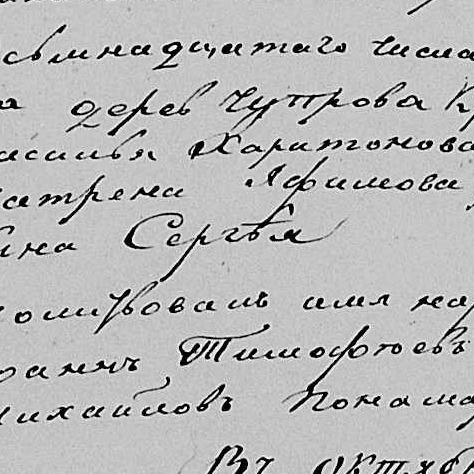 сьмнадцатаго числа
дерев Чупрова К
асилья Харитонова
атрена Яфимова
ина Сергѣя
олитвовалъ имя на
Тимофѣевъ
ихайловъ Понама
Въ Октяб